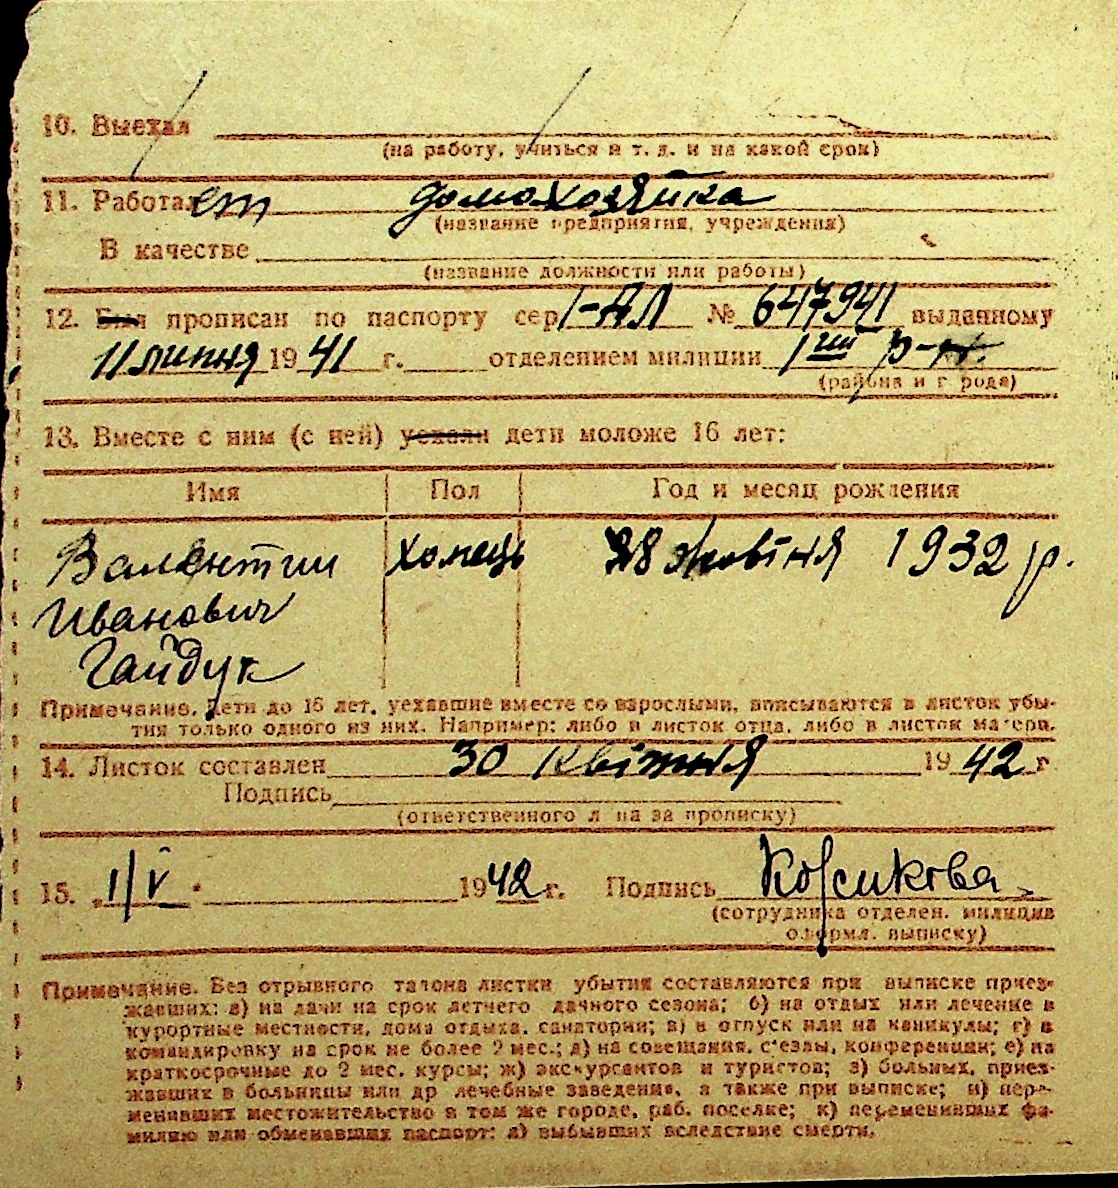 10. Выехал
(на работу, учиться и т. д. и на какой срок)
11. Работает домохозяйка
(название предприятия, учреждения)
В качестве
(название должности или работы)
12. Был прописан по паспорту сер. 1-АЛ № 647941 выданному
11 липня 1941 г. отделением милиции 1ый р-н.
(района и города)
13. Вместе с ним (с ней) уехали дети моложе 16 лет:
Имя Пол Год и месяц рождения
Валентин хлопець 28 жовтня 1932 р.
Иванович
Гайдук
Примечание. Дети до 16 лет, уехавшие вместе со взрослыми, вписываются в листок убы-
тия только одного из них. Например: либо в листок отца, либо в листок матери.
14. Листок составлен 30 квітня 1942 г
Подпись
(ответственного лица за прописку)
15. 1/V 1942 г. Подпись
(сотрудника отделен. милиции
оформл. выписку)
Примечание. Без отрывного талона листки убытия составляются при выписке приез-
жавших: а) на дачи на срок летнего дачного сезона; б) на отдых или лечение в
курортные местности, дома отдыха, санатории; в) в отпуск или на каникулы; г) в
командировку на срок не более 2 мес.; д) на совещания, съезды, конференции; е) на
краткосрочные до 2 мес. курсы; ж) экскурсантов и туристов; з) больных, приез-
жавших в больницы или др лечебные заведения, а также при выписке; и) пере-
менивших местожительство в том же городе, раб. поселке; к) переменивших фа-
милию или обменявших паспорт; л) выбывших вследствие смерти.